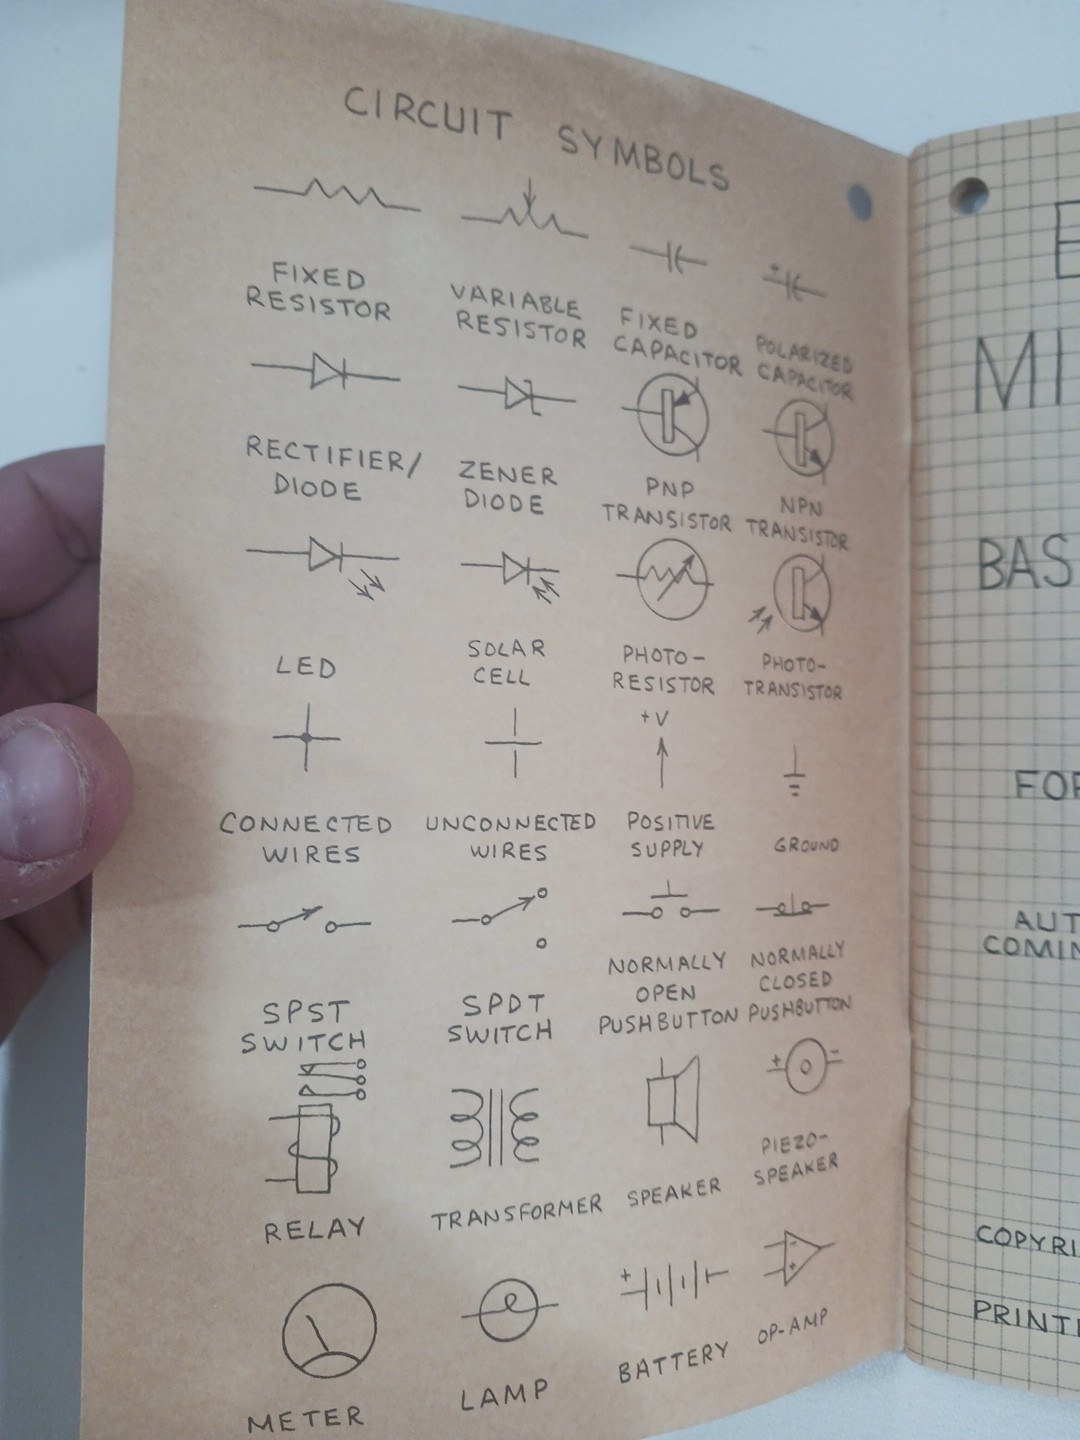 CIRCUIT SYMBOLS
FIXED
RESISTOR
VARIABLE
RESISTOR
FIXED
CAPACITOR
+
POLARIZED
CAPACITOR
RECTIFIER/
DIODE
ZENER
DIODE
PNP
TRANSISTOR
NPN
TRANSISTOR
LED
SOLAR
CELL
PHOTO-
RESISTOR
PHOTO-
TRANSISTOR
CONNECTED
WIRES
UNCONNECTED
WIRES
+V
POSITIVE
SUPPLY
GROUND
SPST
SWITCH
SPDT
SWITCH
NORMALLY
OPEN
PUSHBUTTON
NORMALLY
CLOSED
PUSHBUTTON
RELAY
TRANSFORMER
SPEAKER
+ -
PIEZO-
SPEAKER
METER
LAMP
+
BATTERY
-
+
OP-AMP
E
MI
BAS
FOR
AUT
COMIN
COPYRI
PRINTE